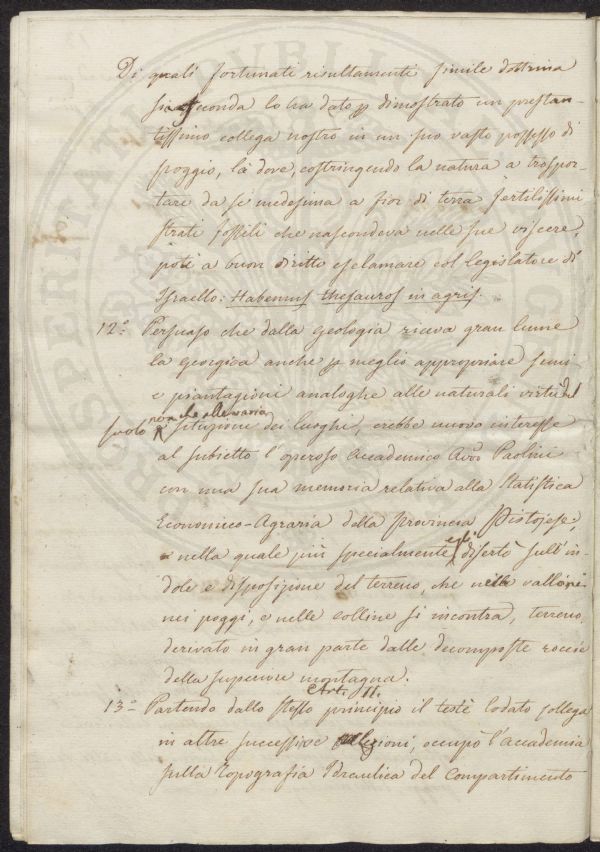 Di quali fortunati risultamenti simile dottrina
sia feconda lo ha dato p dimostrato un prestan-
tissimo collega nostro in un suo vasto possesso di
poggio, là dove, costringendo la natura a traspor-
tare da se medesima a fior di terra fertilissimi
strati fossili che nascondeva nelle sue viscere,
potè a buon diritto esclamare col legislatore di
Israello: Habemus thesauros in agris.
12.° Persuaso che dalla Geologia riceva gran lume
la Georgica anche p meglio appropriare semi
e piantagioni analoghe alle naturali virtù del
suolo non che alla varia situazione dei luoghi, crebbe nuovo interesse
al subietto l'operoso Accademico Avv.° Paolini
con una sua memoria relativa alla Statistica
Economico-Agraria della Provincia Pistojese;
nella quale più specialmente egli disertò sull'in-
dole e disposizione del terreno, che nelle valli,
nei poggi, e nelle colline si incontra, terreno
derivato in gran parte dalle decomposte roccie
della superiore montagna.
Art. 11.
13.° Partendo dallo stesso principio il testè lodato collega
in altre successive lezioni, occupò l'Accademia
sulla Topografia Idraulica del Compartimento